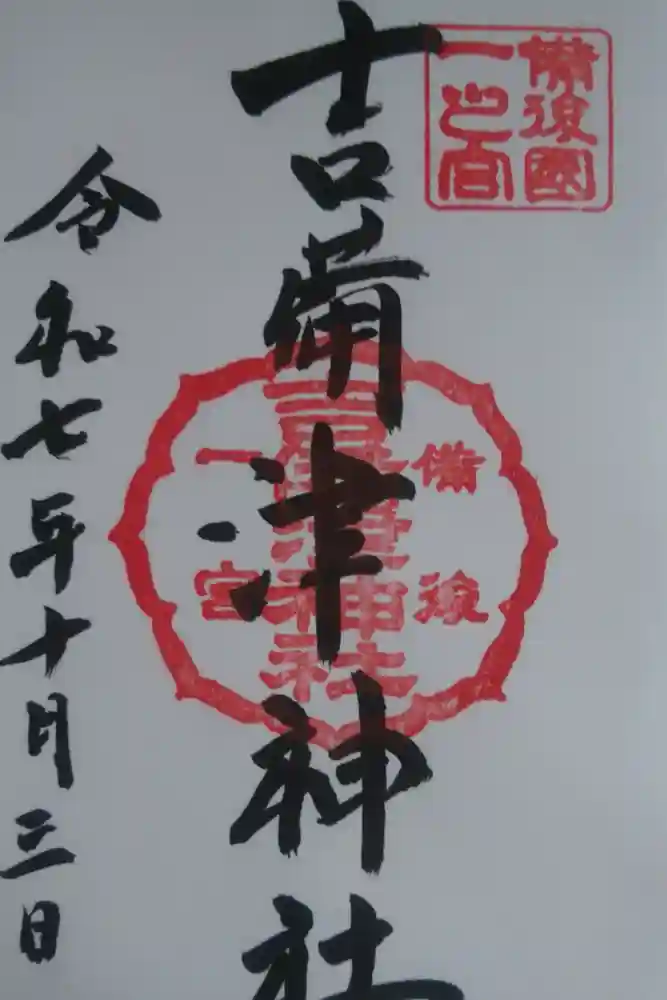 備後國
一之宮
吉備津神社
備後
吉備津神社
一宮
令和七年十月三日